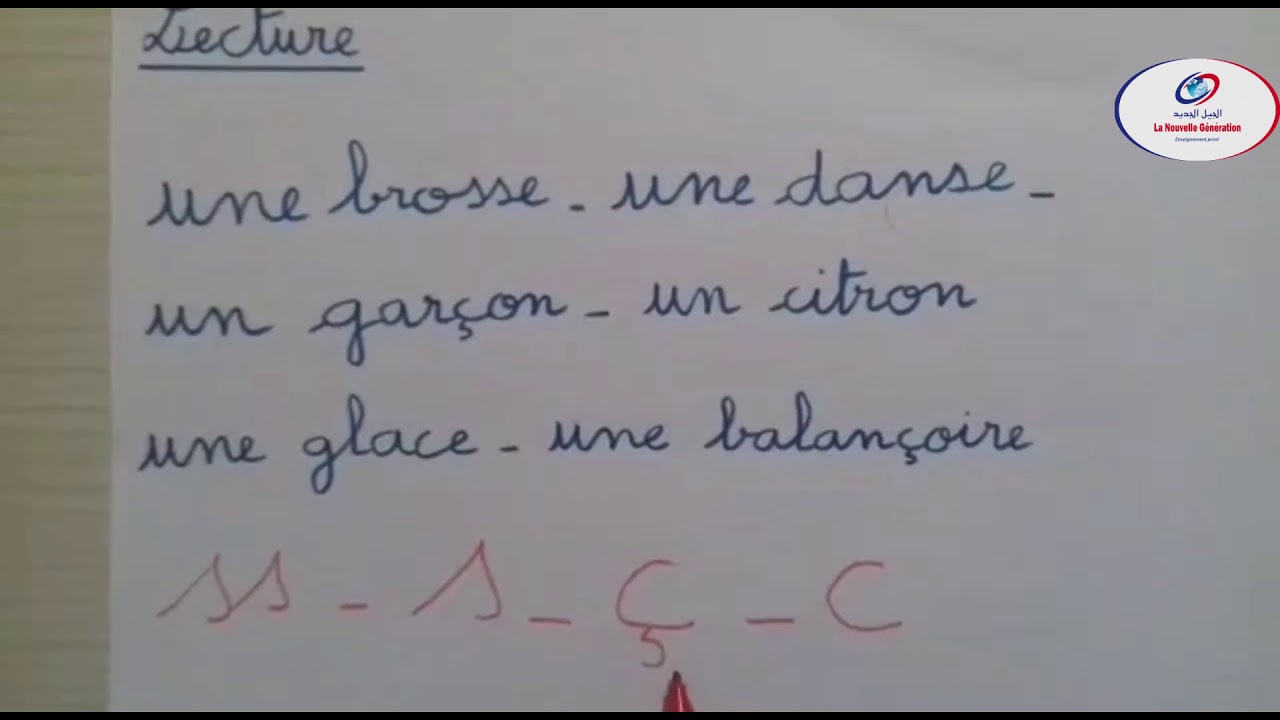 Lecture
الجيل الجديد
La Nouvelle Génération
Enseignement privé
une brosse - une danse -
un garçon - un citron
une glace - une balançoire
ss - s - ç - c